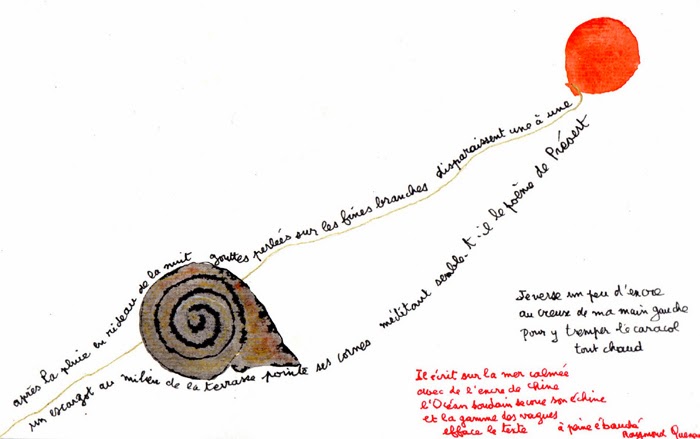 après la pluie en rideau de la nuit gouttes perlées sur les fines branches disparaissent une à une
un escargot au milieu de la terrasse pointe ses cornes méditant semble-t-il le poème de Prévert
Je verse un peu d'encre
au creux de ma main gauche
pour y tremper le caracol
tout chaud
Il écrit sur la mer calmée
avec de l'encre de Chine
l'Océan soudain secoue son échine
et la gamme des vagues
efface le texte à peine ébauché
Raymond Queneau